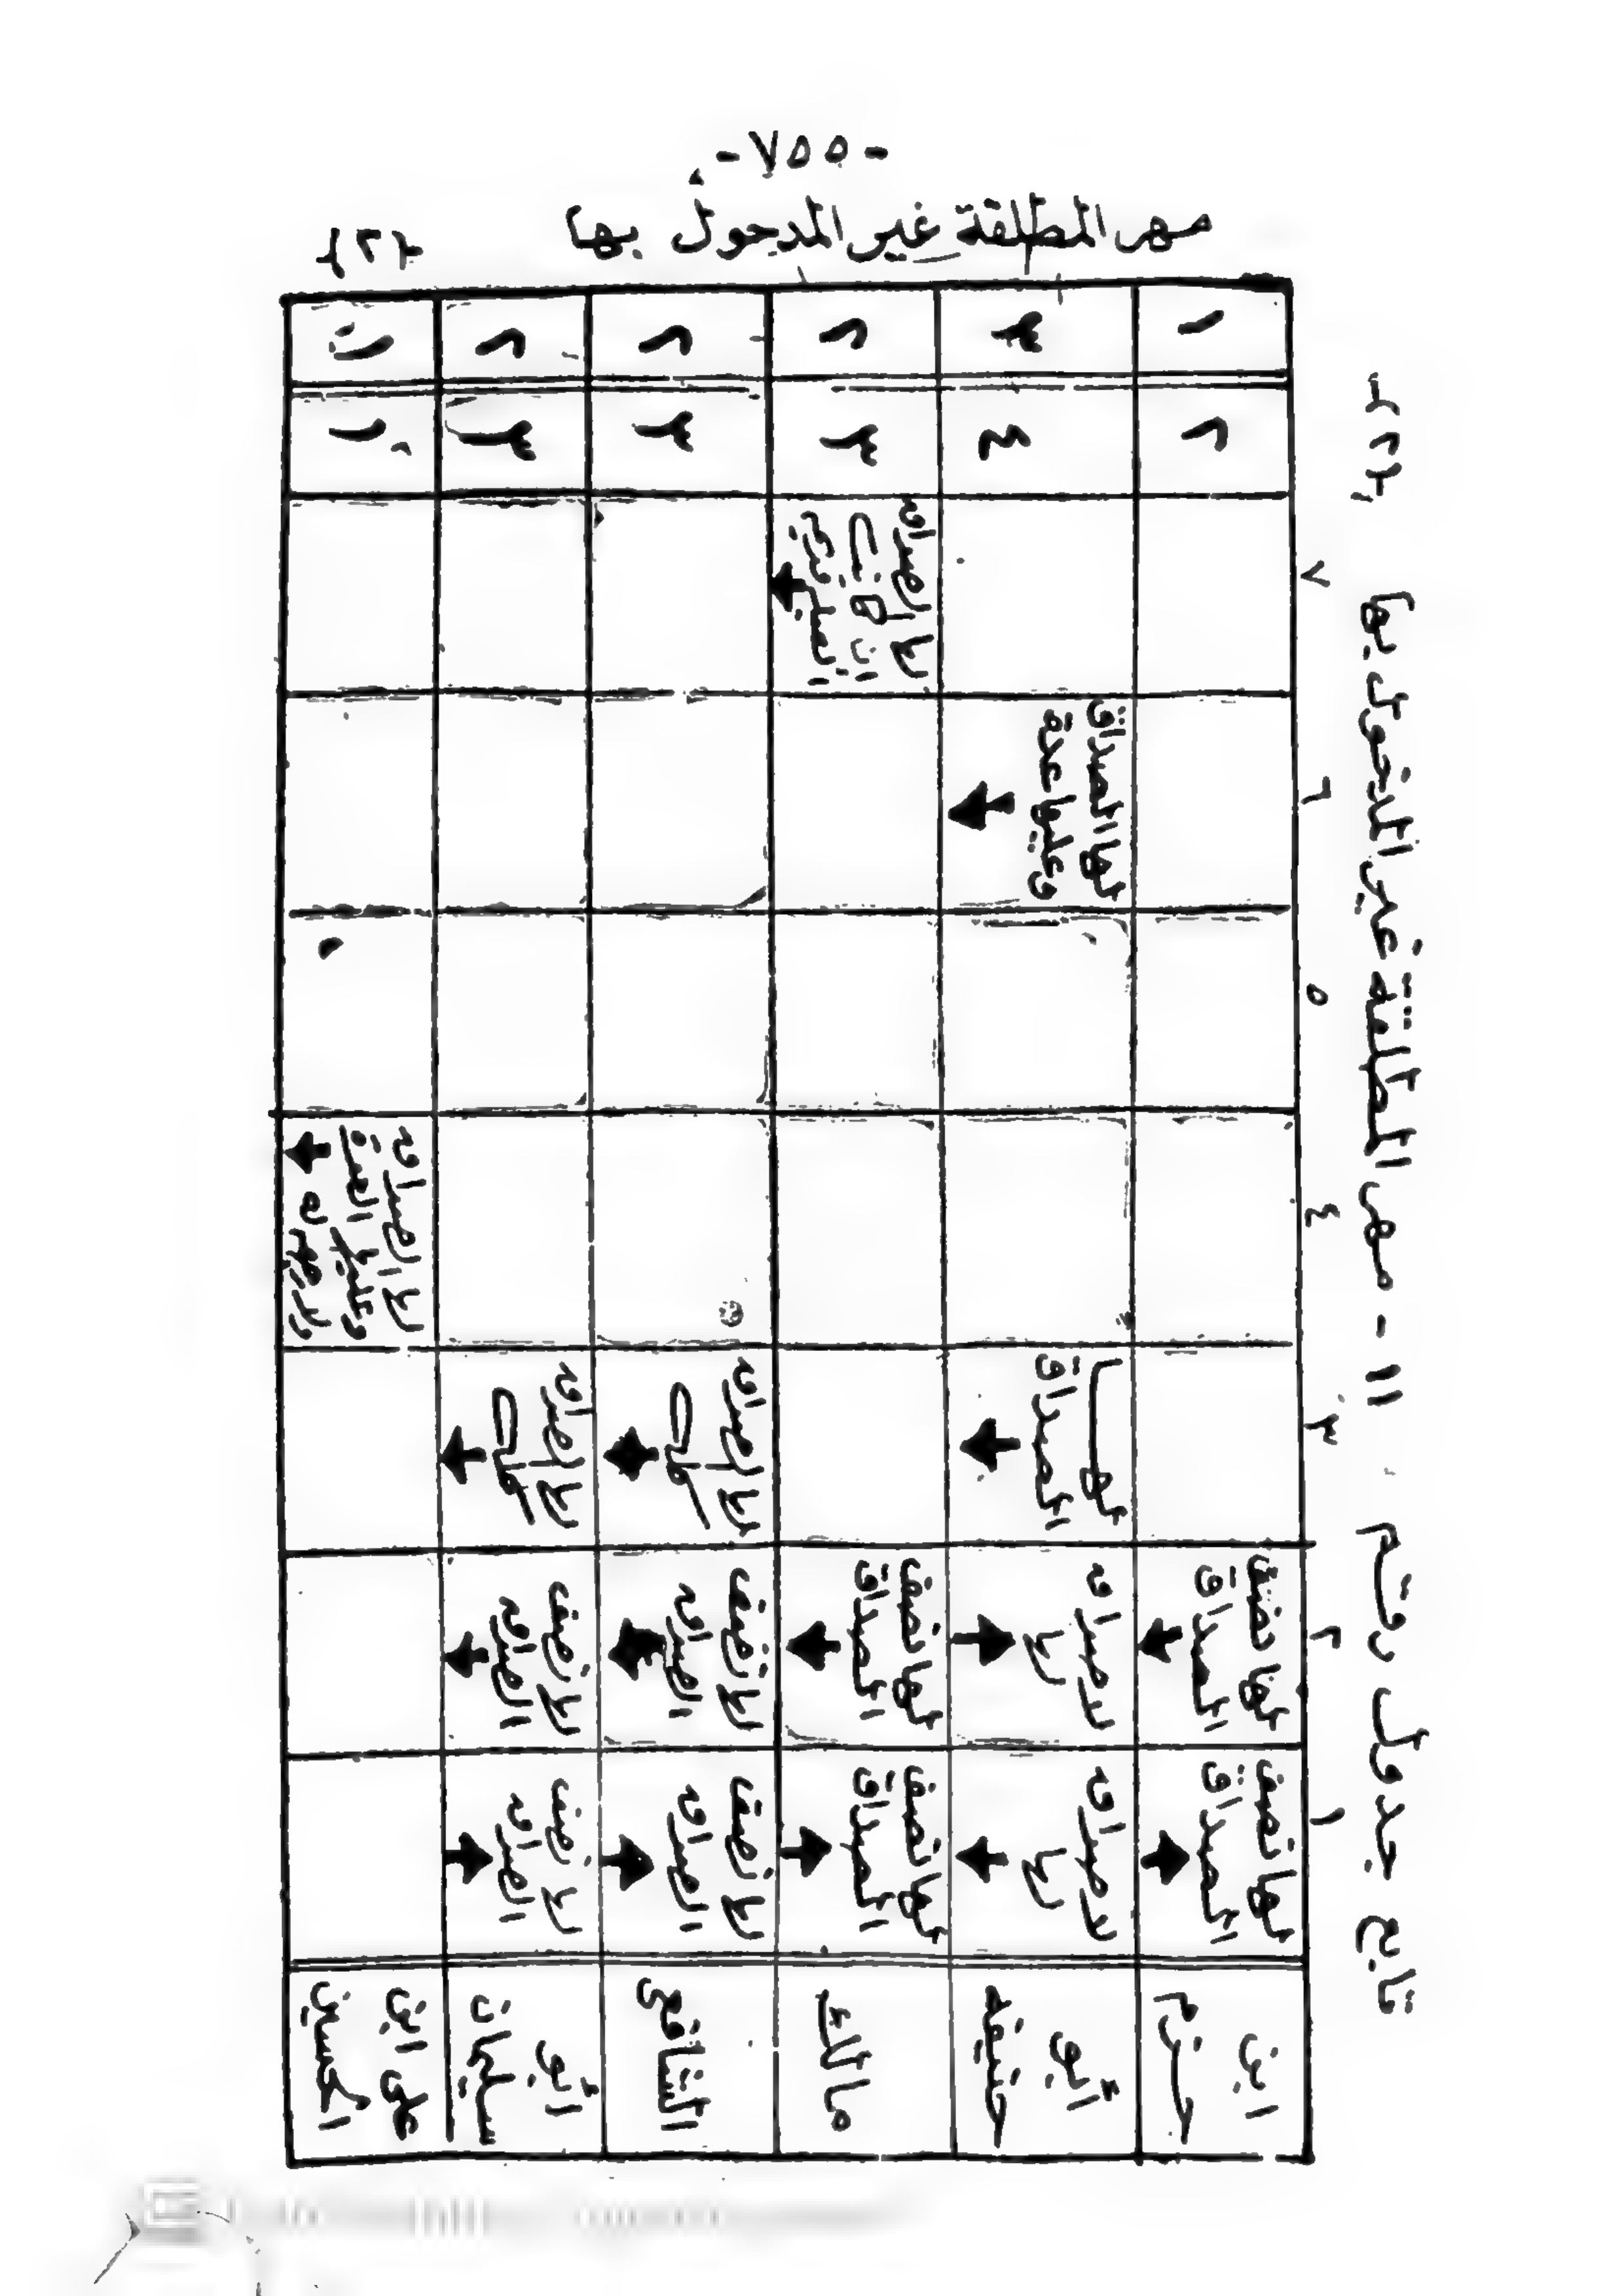 -٧٥٥-
مهر المطلقة غير المدخول بها
تابع جدول رقم ١١ - مهر المطلقة غير المدخول بها
١ ٢ ٣ ٤ ٥ ٦ ٧
ابن حزم
لها نصف الصداق
لها نصف الصداق
٢
١
أبو حنيفه
لا صداق لها
لا صداق لها
لها الصداق
لها الصداق وعليها عدة
٤
٣
مالك
لها نصف الصداق
لها نصف الصداق
لها الصداق
٣
٢
الشافعي
لها نصف الصداق
لها نصف الصداق
لها الصداق
٣
٢
أبو سليمان
لها نصف الصداق
لها نصف الصداق
لها الصداق
٣
٢
على ابن الحسين
لها الصداق وعليها العدة
١